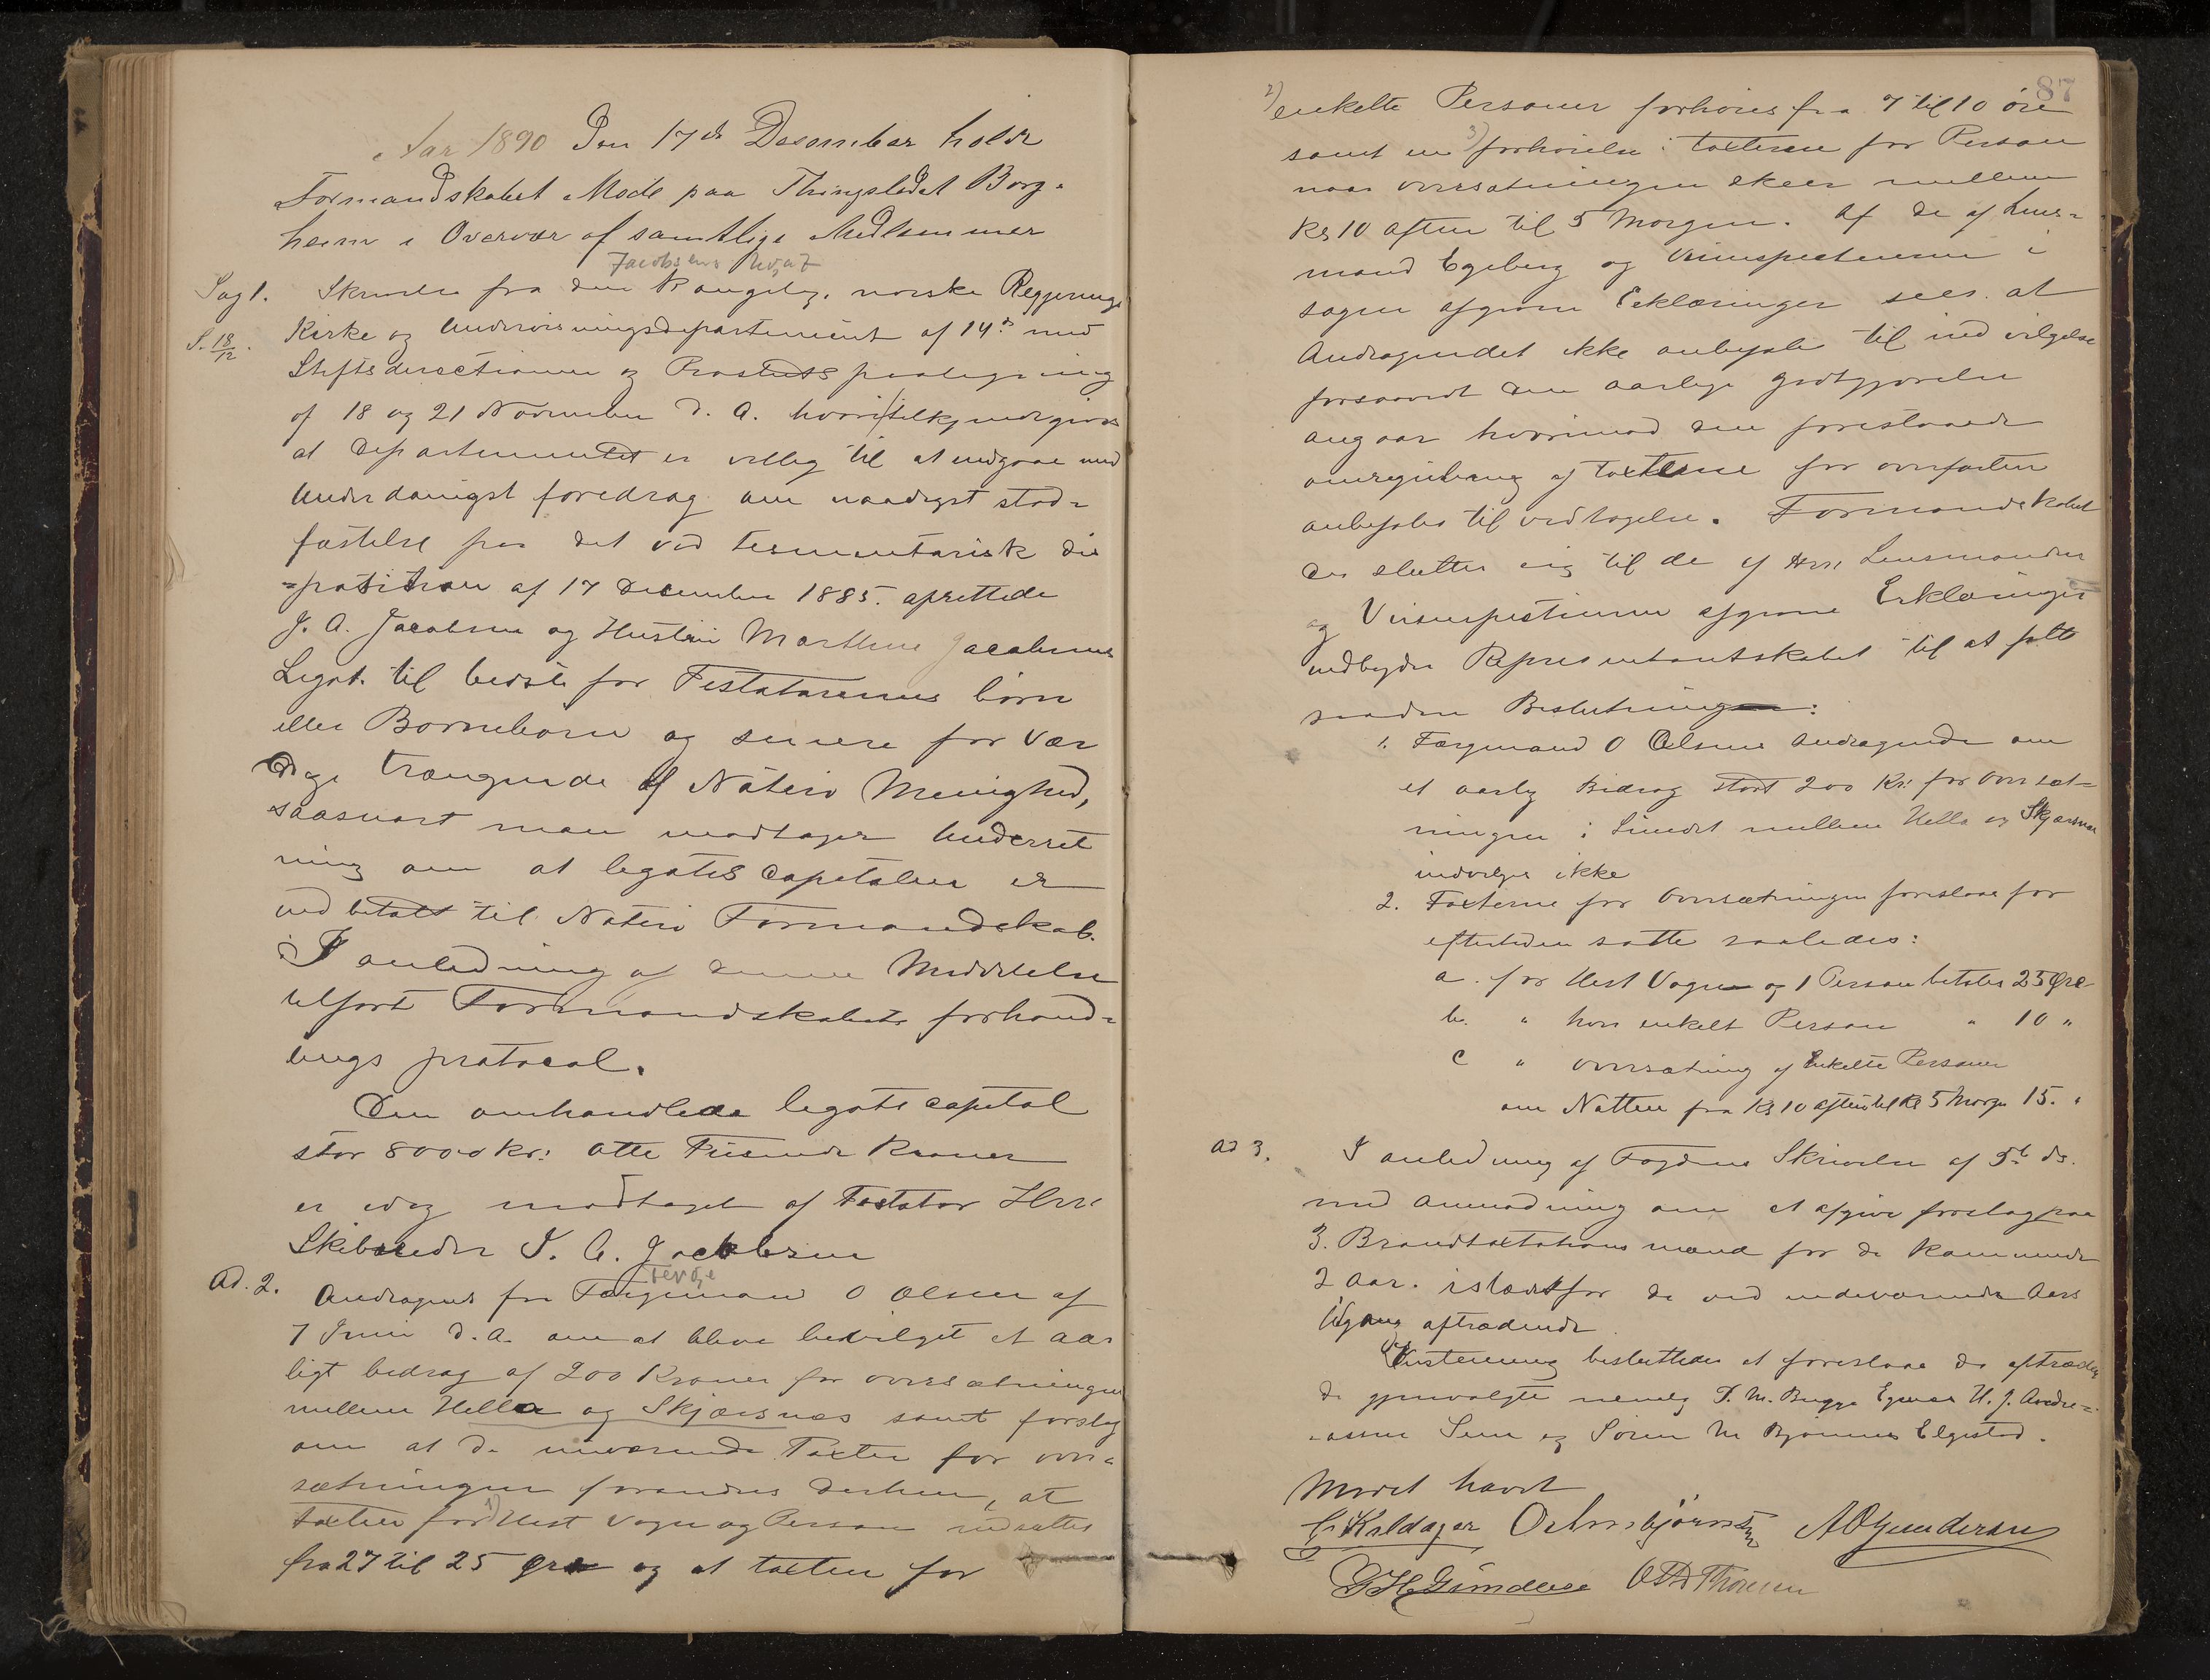 Aar 1890 Den 17de Desember holdt
Formandskabet Møde paa Thingstedet Borg-
heim i Overvær af samtlige Medlemmer
Jacobsens legat
Sag 1. Skrivelse fra den Kongelig. norske Regjerings
S. 18/12. Kirke og Undervisningsdepartement af 14de med
Stiftsdirectionen og Provstens paategning
af 18 og 21 November d. A. hvori tilkjendegives
at Departementet er villig til at indgaae med
Underdanigst foredrag om naadigst stad-
fæstelse paa det ved testmentarisk dis
-position af 17 December 1885. oprettede
J. A. Jacobsen og Hustru Marthine Jacobsens
Legat til bedste for Testatorernes børn
eller Børnebørn og senere for Vær
dige trængende af Nøterø Menighed,
saasnart man modtager Underret
ning om at legatscapitalen er
indbetalt til Nøterø Formandskab.
I anledning af denne Meddelelse
tilført Formandskabets forhand-
lings protocol.
Den omhandlede legatscapital
stor 8000 kr: Otte Tusinde Kroner
er idag modtaget af Testator Herr
Skibsreder J. A. Jacobsen
Ferge
Ad. 2. Andragende fra Færgemand O Olsen af
7 Juni d.A. om at blive bevilget et aar
ligt bidrag af 200 Kroner for oversætningen
mellem Hella og Skjærsnæs samt forslag
om at de nuværende Taxter for over-
sætningen forandres derhen, at
taxten for 1) Hest Vogn og Person nedsættes
fra 27 til 25 øre og at taxten for
87
2) enkelte Personer forhøies fra 7 til 10 øre
samt en 3) forhøielse i taxterne for Person
naar oversætningen skeer mellem
Kl 10 aften til 5 Morgen. Af de af Lens-
mand Egeberg og Veiinspecteuren i
sagen afgivne Erklæringer sees at
Andragendet ikke anbefales til indvilgelse
forsaavidt den aarlige godtgjørelse
angaar hvorimod den foreslaaede
omregulering af taxterne for overfarten
anbefales til vedtagelse. Formandskabet
der slutter sig til de af Herr Lensmanden
og Veiinspecteuren afgivne Erklæringer
indbyder Representantskabet til at fatte
saadan Beslutning:
1. Færgemand O Olsens Andragende om
et aarlig Bidrag stort 200 Kr: for Oversæt-
ningen i Sundet mellem Hella og Skjærsnæs
indvilges ikke
2. Taxterne for Oversætningen foreslaaes for
eftertiden satte saaledes:
a. for Hest Vogn og 1 Person betales 25 Øre
b. " hver enkelt Person " 10 "
c " oversætning af Enkelte Personer
om Natten fra Kl 10 aften til Kl 5 Morgen 15. "
Ad 3. I anledning af Fogdens Skrivelse af 5te ds.
med Anmodning om at afgive forslag paa
3. Brandtaxtations mænd for de kommende
2 Aar. istædetfor de ved indeværende Aars
Udgang aftrædende
besluttedes at foreslaae de aftræden
de gjenvalgte nemlig T. M. Bugge H. J. Andre-
-assen Sem og Søren M Bjønnes Elgestad.
Mødet hævet
C. Kaldager O Arnebjørnsen A O Gundersen
G H Gundersen O Thoresen